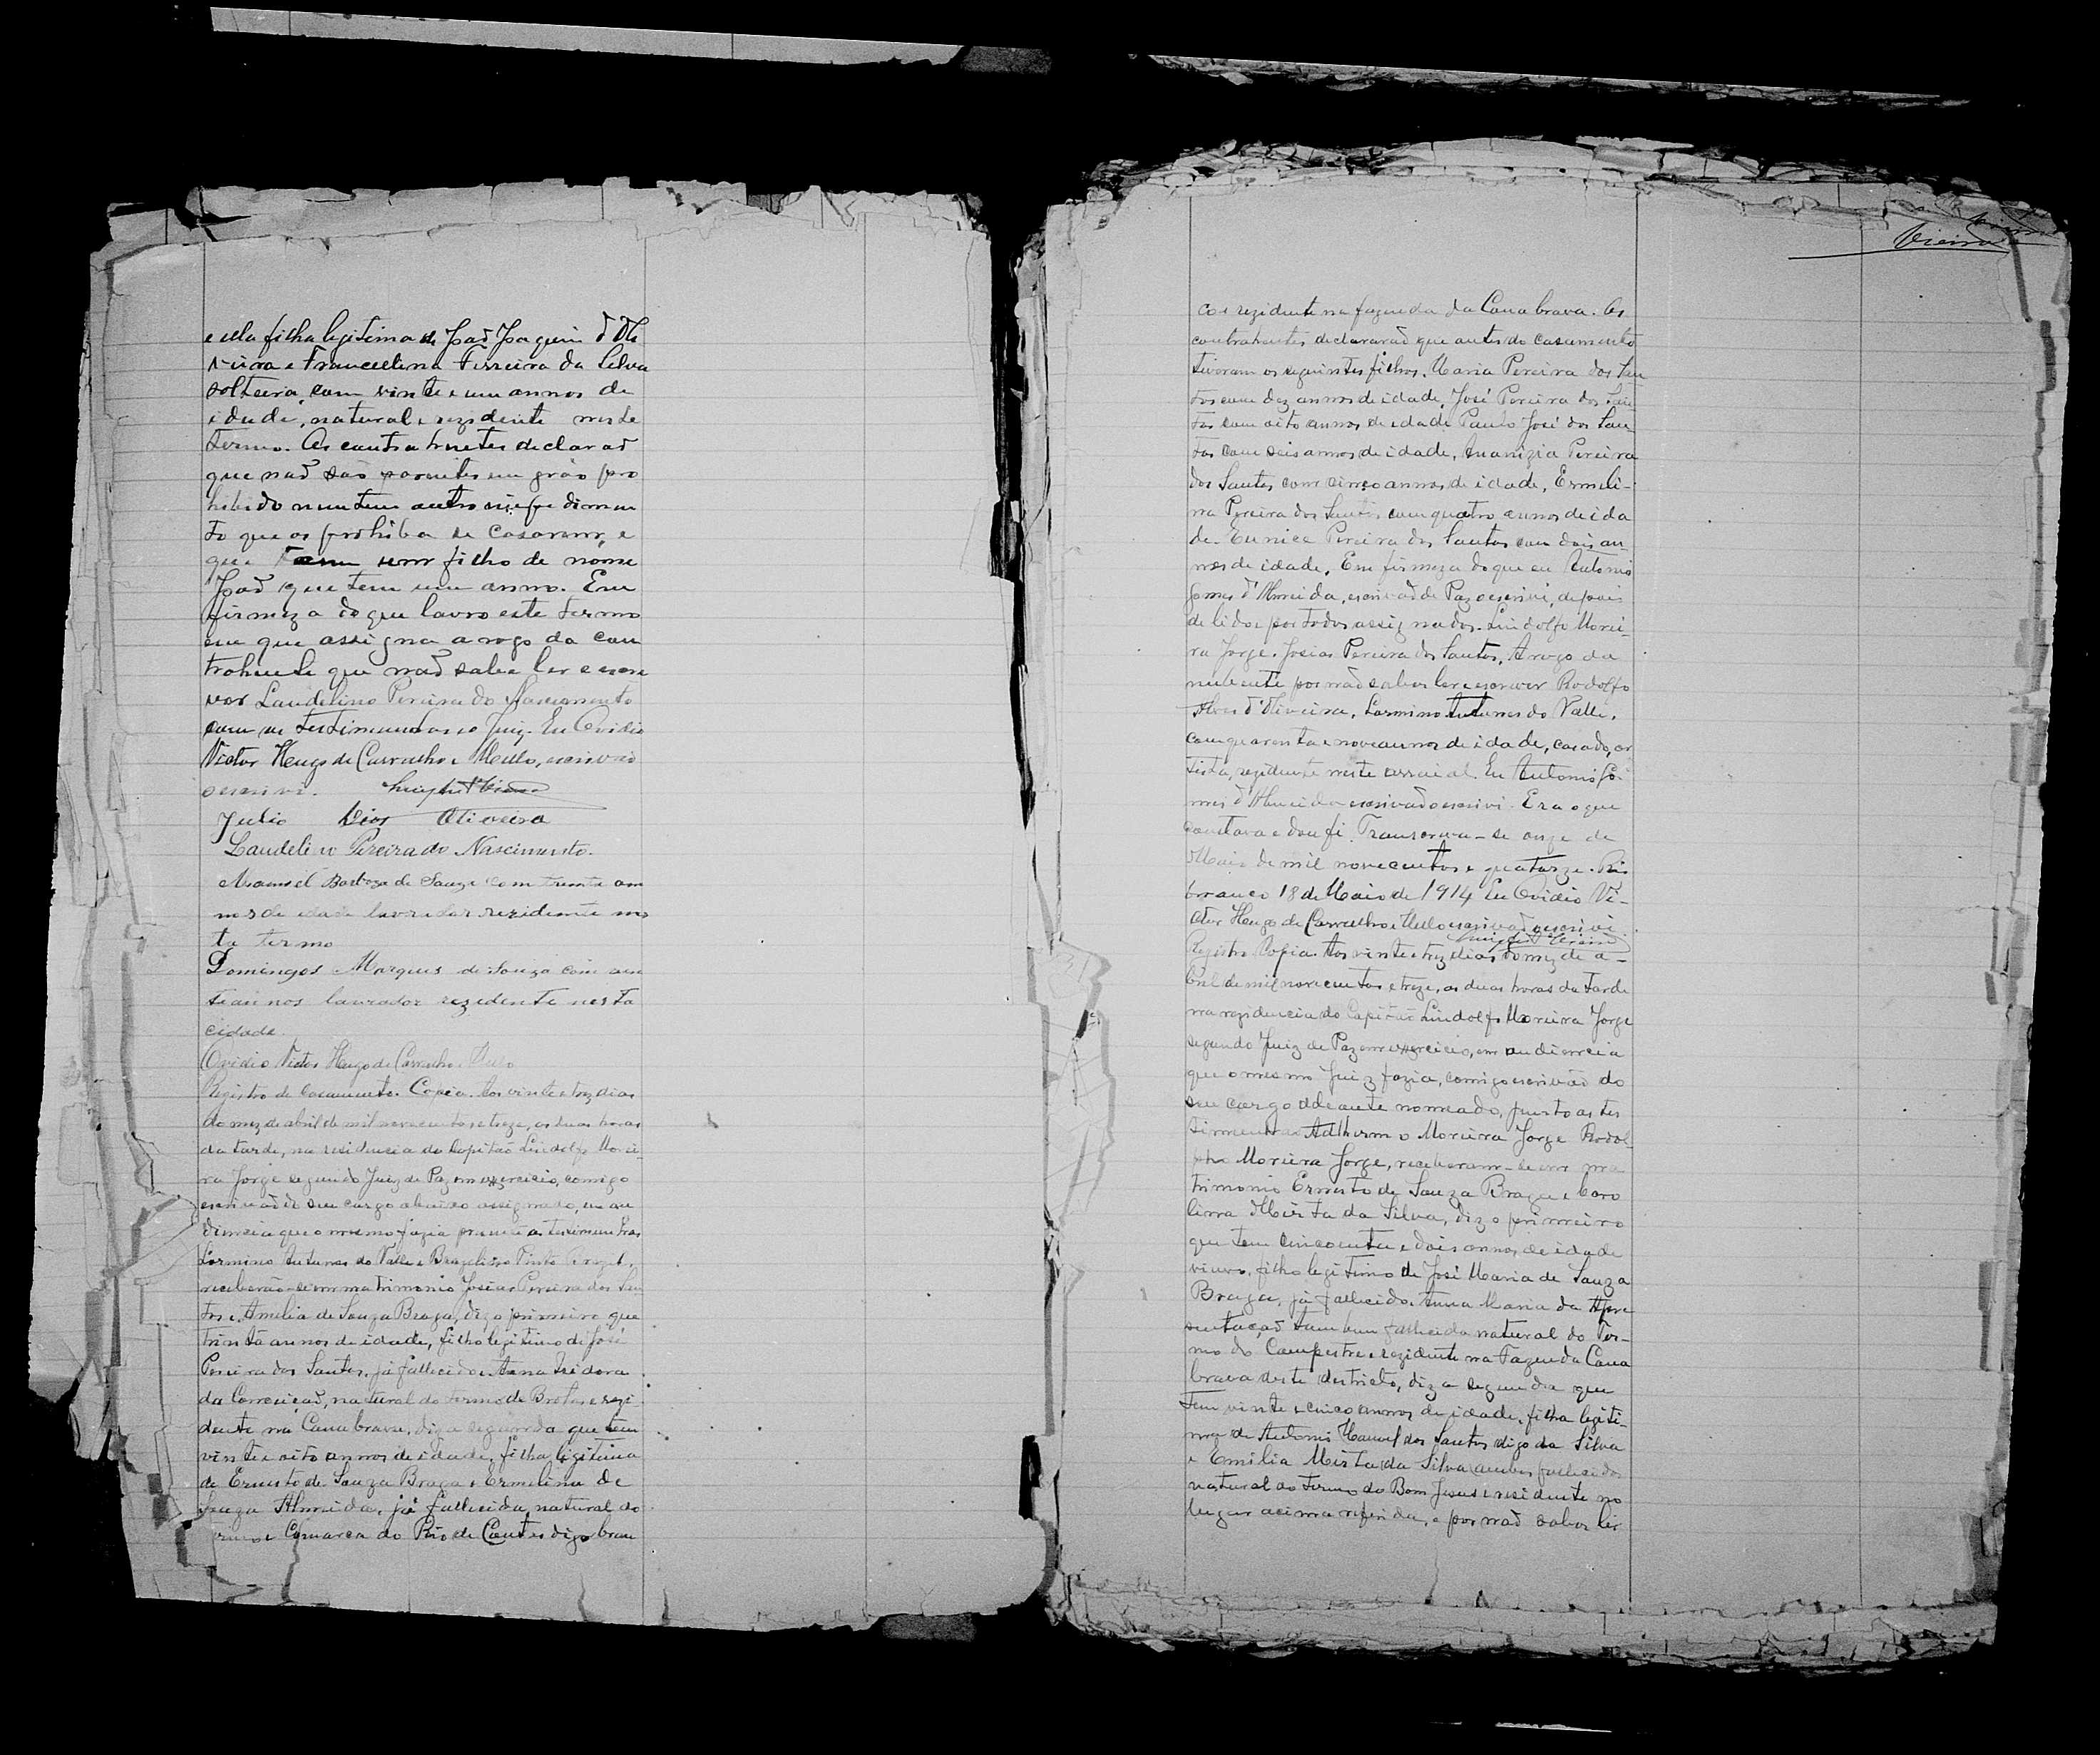 e ella filha legitima de Joaõ Joaquim d'Oli
veira e Francelina Ferreira da Silva
solteira, com vinte e um annos de
idade, natural e rezidente neste
termo. Os contrahentes declaraõ
que naõ saõ parentes em gráo pro
hibido nem tem outro impedimen
to que os prohiba de casarem, e
que tem um filho de nome
Joaõ que tem um anno. Em
firmeza do que lavro este termo
em que assigna a rogo da con
trahente que naõ sabe ler e escre
ver Laudelino Pereira do Nascimento
com as testimunhas e o Juiz. Eu Ovidio
Victor Hugo de Carvalho e Mello, escrivaõ
o escrivi.
Julio Dias Oliveira
Laudelino Pereira do Nascimento.
Manoel Barboza de Souza com trinta an
nos de idade lavrador rezidente nes
te termo
Domingos Marques de Souza com
annos lavrador rezidente nesta
cidade.
Ovidio Victor Hugo de Carvalho e Mello
Registro de Casamento. Copia. Aos vinte e trez dias
do mez de abril de mil novecentos e treze, as duas horas
da tarde, na residencia do Capitão Lindolfo Morei-
ra Jorge segundo Juiz de Paz em exercicio, comigo
escrivaõ de seu cargo abaixo assignado, em au
diencia que o mesmo fazia presente as testimunhas
Lormino Antunes do Valle e Brazilino Pinto
receberão-se em matrimonio Josias Pereira dos San
tos e Amelia de Souza Braga, diz o primeiro que
trinta annos de idade, filho legitimo de José
Pereira dos Santos, já fallecido e Anna Izidora
da Conceiçaõ, natural do termo de Brotas e rezi-
dente na Canabrava, diz a segunda que tem
vinte e oito annos de idade, filha legitima
de Ernesto de Souza Braga e Ermelina de
Souza Almeida, já fallecida, natural do
termo e Comarca do Rio de Contas digo bran
Vieira
co e rezidente na fazenda da Canabrava. Os
contrahentes declararaõ que antes do casamento
tiveram os seguintes filhos. Maria Pereira dos San
tos com dez annos de idade, José Pereira dos San
tos com oito annos de idade Paulo José dos San-
tos com seis annos de idade, Anarizia Pereira
dos Santos com cinco annos de idade, Ermeli-
na Pereira dos Santos com quatro annos de ida
de. Eunice Pereira dos Santos com dois an-
nos de idade. Em firmeza do que eu Antonio
Gomes d'Almeida, escrivaõ de Paz o escrivi, depois
de lido e por todos assignados. Lindolfo Morei-
ra Jorge. Josias Pereira dos Santos. A rogo da
nubente por naõ saber ler e escrever Rodolfo
Alves d'Oliveira. Lormino Antunes do Valle,
com quarenta e nove annos de idade, casado, ar
tista, rezidente neste arraial. Eu Antonio Go-
mes d'Almeida escrivaõ o escrivi. Era o que
constava e dou fé. Transcreva-se onze de
Maio de mil novecentos e quatorze. Rio
branco 18 de Maio de 1914 Eu Ovidio Vi-
ctor Hugo de Carvalho e Mello escrivaõ o escrivi.
Registro Copia. Aos vinte e trez dias do mez de a-
bril de mil novecentos e treze, as duas horas da tarde
na rezidencia do Capitão Lindolfo Moreira Jorge
segundo Juiz de Paz em exercicio, em audiencia
que o mesmo Juiz fazia, comigo escrivão do
seu cargo adeante nomeado, junto as tes
timunhas Adlhermo Moreira Jorge Rodol
pho Moreira Jorge, receberam-se em ma
trimonio Ernesto de Souza Braga e Caro
lina Mirta da Silva, diz o primeiro
que tem cincoenta e dois annos de idade
viuvo, filho legitimo de José Maria de Souza
Braga, já fallecido e Anna Maria da Apre
sentaçaõ tambem fallecida natural do Ter-
mo do Campestre e rezidente na Fazenda Cana
brava deste destricto, diz a segunda que
tem vinte e cinco annos de idade, filha legiti-
ma de Antonio Manoel dos Santos digo da Silva
e Emilia Mirta da Silva ambos fallecidos
natural do termo do Bom Jesus e residente no
lugar acima referido, e por naõ saber ler